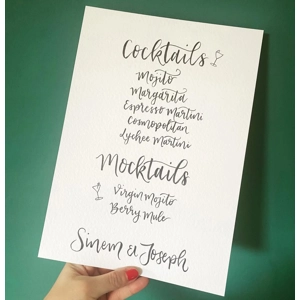 Cocktails
Mojito
Margarita
Espresso Martini
Cosmopolitan
Lychee Martini
Mocktails
Virgin Mojito
Berry Mule
Sinem & Joseph